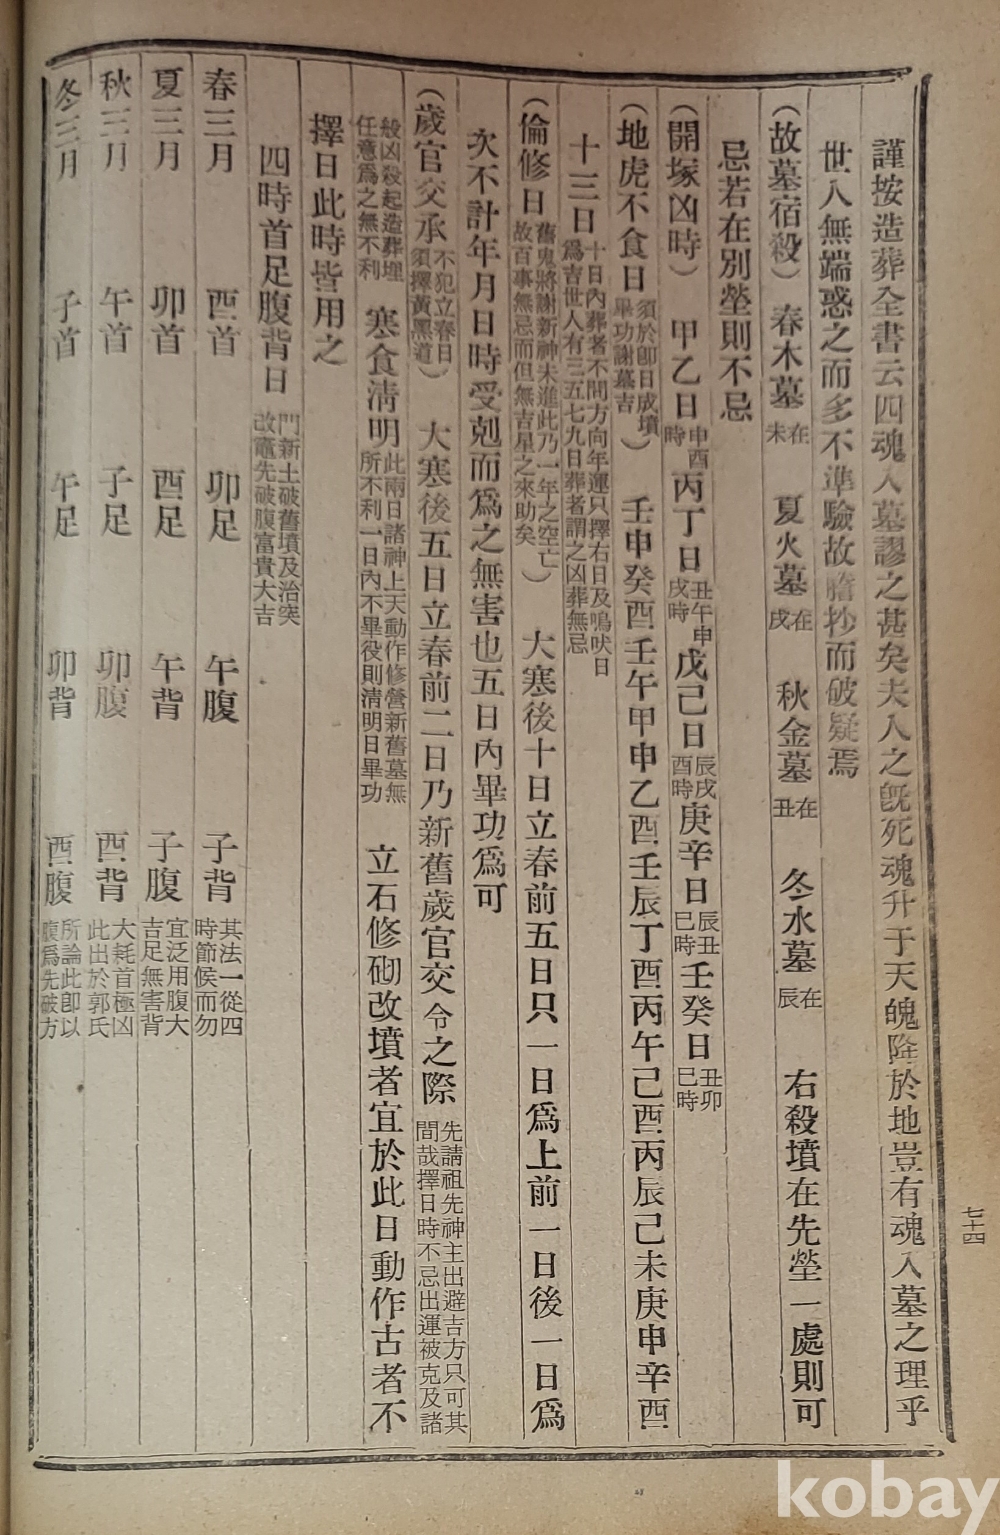 謹按造葬全書云四魂入墓謬之甚矣夫人之旣死魂升于天魄降於地豈有魂入墓之理乎
世人無端惑之而多不準驗故謄抄而破疑焉
(故墓宿殺) 春木墓在未 夏火墓在戌 秋金墓在丑 冬水墓在辰 右殺墳在先塋一處則可
忌若在別塋則不忌
(開塚凶時) 甲乙日申酉時丙丁日丑午申戌時戊己日辰戌酉時庚辛日辰丑巳時壬癸日丑卯巳時
(地虎不食日須於卽日成墳畢功謝墓吉) 壬申癸酉壬午甲申乙酉壬辰丁酉丙午己酉丙辰己未庚申辛酉
十三日十日內葬者不問方向年運只擇右日及鳴吠日爲吉世人有三五七九日葬者謂之凶葬無忌
(倫修日舊鬼將謝新神未進此乃一年之空亡故百事無忌而但無吉星之來助矣) 大寒後十日立春前五日只一日爲上前一日後一日爲
次不計年月日時受剋而爲之無害也五日內畢功爲可
(歲官交承不犯立春日須擇黃黑道) 大寒後五日立春前二日乃新舊歲官交令之際先請祖先神主出避吉方只可其間哉擇日時不忌出運被克及諸
殺凶殺起造葬埋任意爲之無不利 寒食淸明此兩日諸神上天動作修營新舊墓無所不利一日內不畢役則淸明日畢功 立石修砌改墳者宜於此日動作古者不
擇日此時皆用之
四時首足腹背日門新土破舊墳及治突改竈先破腹富貴大吉
春三月 酉首 卯足 午腹 子背其法一從四時節候而勿
夏三月 卯首 酉足 午背 子腹宜泛用腹大吉足無害背
秋三月 午首 子足 卯腹 酉背大耗首極凶此出於郭氏
冬三月 子首 午足 卯背 酉腹所論此卽以腹爲先破方
七十四
kobay